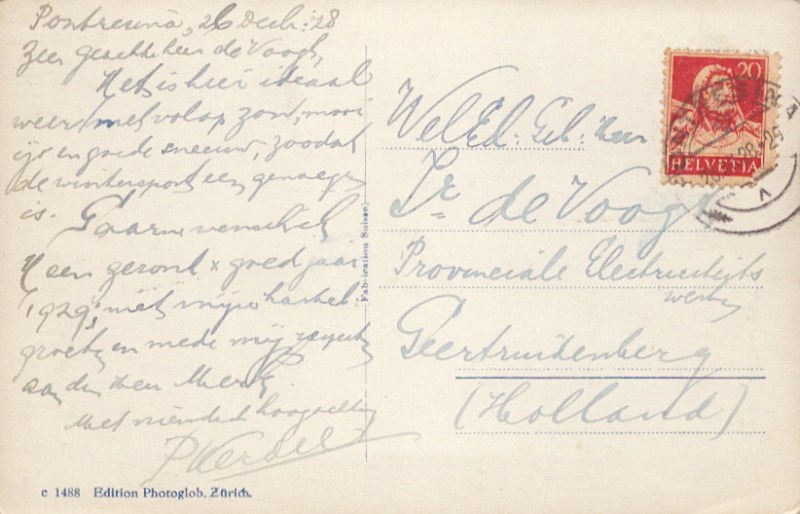 Pontresina, 26 Dech: 28
Zeer geachte heer de Voogt,
Het is hier ideaal
weer, met volop zon, mooi
ijs en goede sneeuw, zoodat
de wintersport een genoegen
is. Gaarne wensch ik
U een gezond & goed jaar
1929, met mijn hartel.
groeten en mede mij
aan den Heer
Met vriendel. hoogachting
P Kerdel
WelEd: Geb: Heer
Ir de Voogt
Provinciale Electriciteits
werken
Geertruidenberg
(Holland)
20
HELVETIA
Fabrication Suisse
c 1488 Edition Photoglob, Zürich.